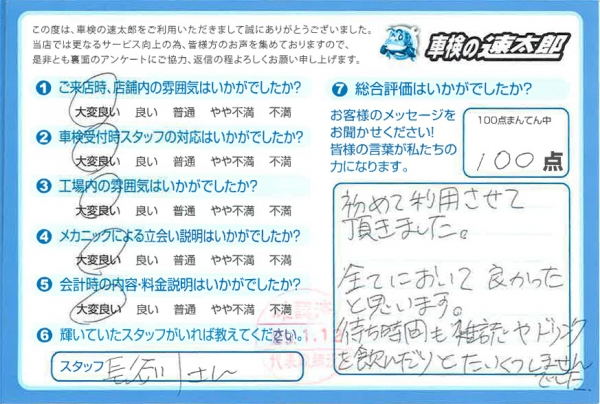 この度は、車検の速太郎をご利用いただきまして誠にありがとうございました。
当店では更なるサービス向上の為、皆様方のお声を集めておりますので、
是非とも裏面のアンケートにご協力、返信の程よろしくお願い申し上げます。
車検の速太郎
1 ご来店時、店舗内の雰囲気はいかがでしたか?
大変良い 良い 普通 やや不満 不満
2 車検受付時スタッフの対応はいかがでしたか?
大変良い 良い 普通 やや不満 不満
3 工場内の雰囲気はいかがでしたか?
大変良い 良い 普通 やや不満 不満
4 メカニックによる立会い説明はいかがでしたか?
大変良い 良い 普通 やや不満 不満
5 会計時の内容・料金説明はいかがでしたか?
大変良い 良い 普通 やや不満 不満
6 輝いていたスタッフがいれば教えてください。
スタッフ 長谷川さん
7 総合評価はいかがでしたか?
お客様のメッセージを
お聞かせください!
皆様の言葉が私たちの
力になります。
100点まんてん中
100 点
初めて利用させて
頂きました。
全てにおいて良かった
と思います。
待ち時間も雑誌やドリンク
を飲んだりとたいくつしません
でした。